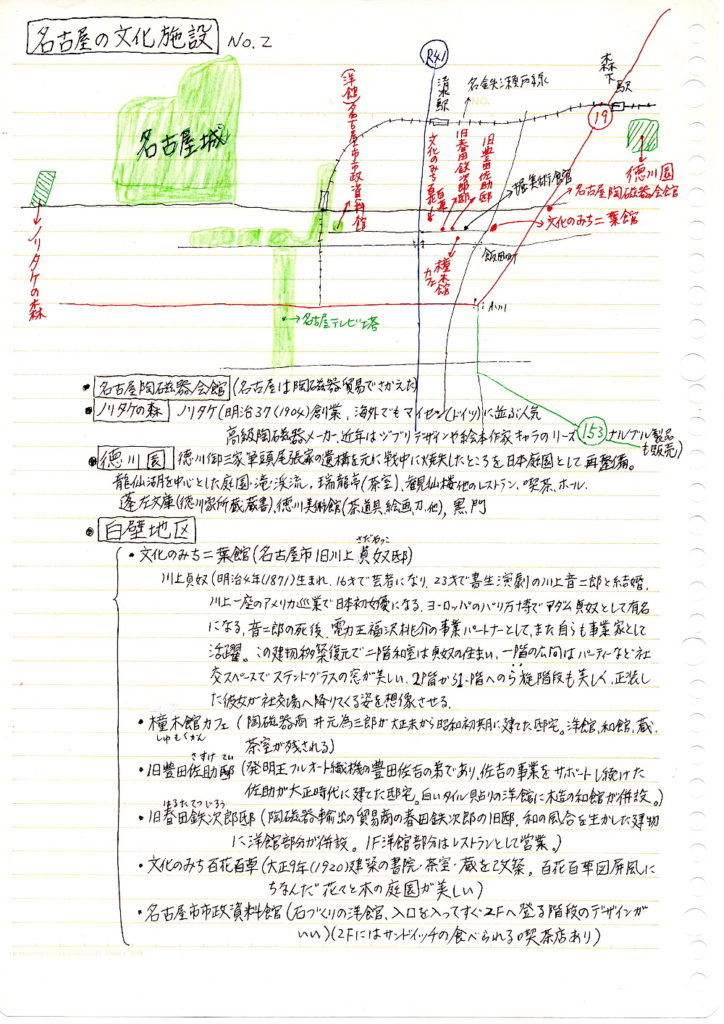 名古屋の文化施設 No.2
R41
森下駅
清水駅
名鉄瀬戸線
19
名古屋城
(洋館)名古屋市市政資料館
文化のみち百花百草
旧春田鉄次郎邸
旧豊田佐助邸
堀美術館
徳川園
名古屋陶磁器会館
文化のみち二葉館
橦木館カフェ
飯田町
ノリタケの森
名古屋テレビ塔
・名古屋陶磁器会館(名古屋は陶磁器貿易でさかえた)
・ノリタケの森 ノリタケ(明治37(1904)創業、海外でもマイセン(ドイツ)に並ぶ人気
高級陶磁器メーカー、近年はジブリデザインや絵本作家キャラのリーズナルブル製品も販売)
153
・徳川園 徳川御三家筆頭尾張家の遺構を元に戦中に焼失したところを日本庭園として再整備。
龍仙湖を中心とした庭園・滝・渓流、瑞龍亭(茶室)、観仙楼他のレストラン、喫茶、ホール、
蓬左文庫(徳川家所蔵蔵書)、徳川美術館(茶道具、絵画、刀、他)、黒門
・白壁地区
・文化のみち二葉館(名古屋市旧川上貞奴邸)
さだやっこ
川上貞奴(明治4年(1871)生まれ、16才で芸者になり、23才で書生演劇の川上音二郎と結婚、
川上一座のアメリカ巡業で日本初女優になる、ヨーロッパのパリ万博でマダム貞奴として有名
になる、音二郎の死後、電力王福沢桃介の事業パートナーとして、また自らも事業家として
活躍。この建物移築復元で二階和室は貞奴の住まい、一階の広間はパーティーなど社
交スペースでステンドグラスの窓が美しい、2階から1階へのら旋階段も美しく、正装し
た彼女が社交場へ降りてくる姿を想像させる.
・橦木館カフェ(陶磁器商 井元為三郎が大正末から昭和初期に建てた邸宅。洋館、和館、蔵、
しゅもくかん
茶室が残される)
さすけ てい
・旧豊田佐助邸(発明王フルオート織機の豊田佐吉の弟であり、佐吉の事業をサポートし続けた
佐助が大正時代に建てた邸宅。白いタイル貼りの洋館に木造の和館が併設。)
はるたてつじろう
・旧春田鉄次郎邸(陶磁器輸出の貿易商の春田鉄次郎の旧邸、和の風合を生かした建物
に洋館部分が併設。1F洋館部分はレストランとして営業。)
・文化のみち百花百草(大正9年(1920)建築の書院・茶室・蔵を改築。百花百草図屏風に
ちなんだ花々と木の庭園が美しい)
・名古屋市市政資料館(石づくりの洋館、入口を入ってすぐ2Fへ登る階段のデザインが
いい)(2Fにはサンドイッチの食べられる喫茶店あり)